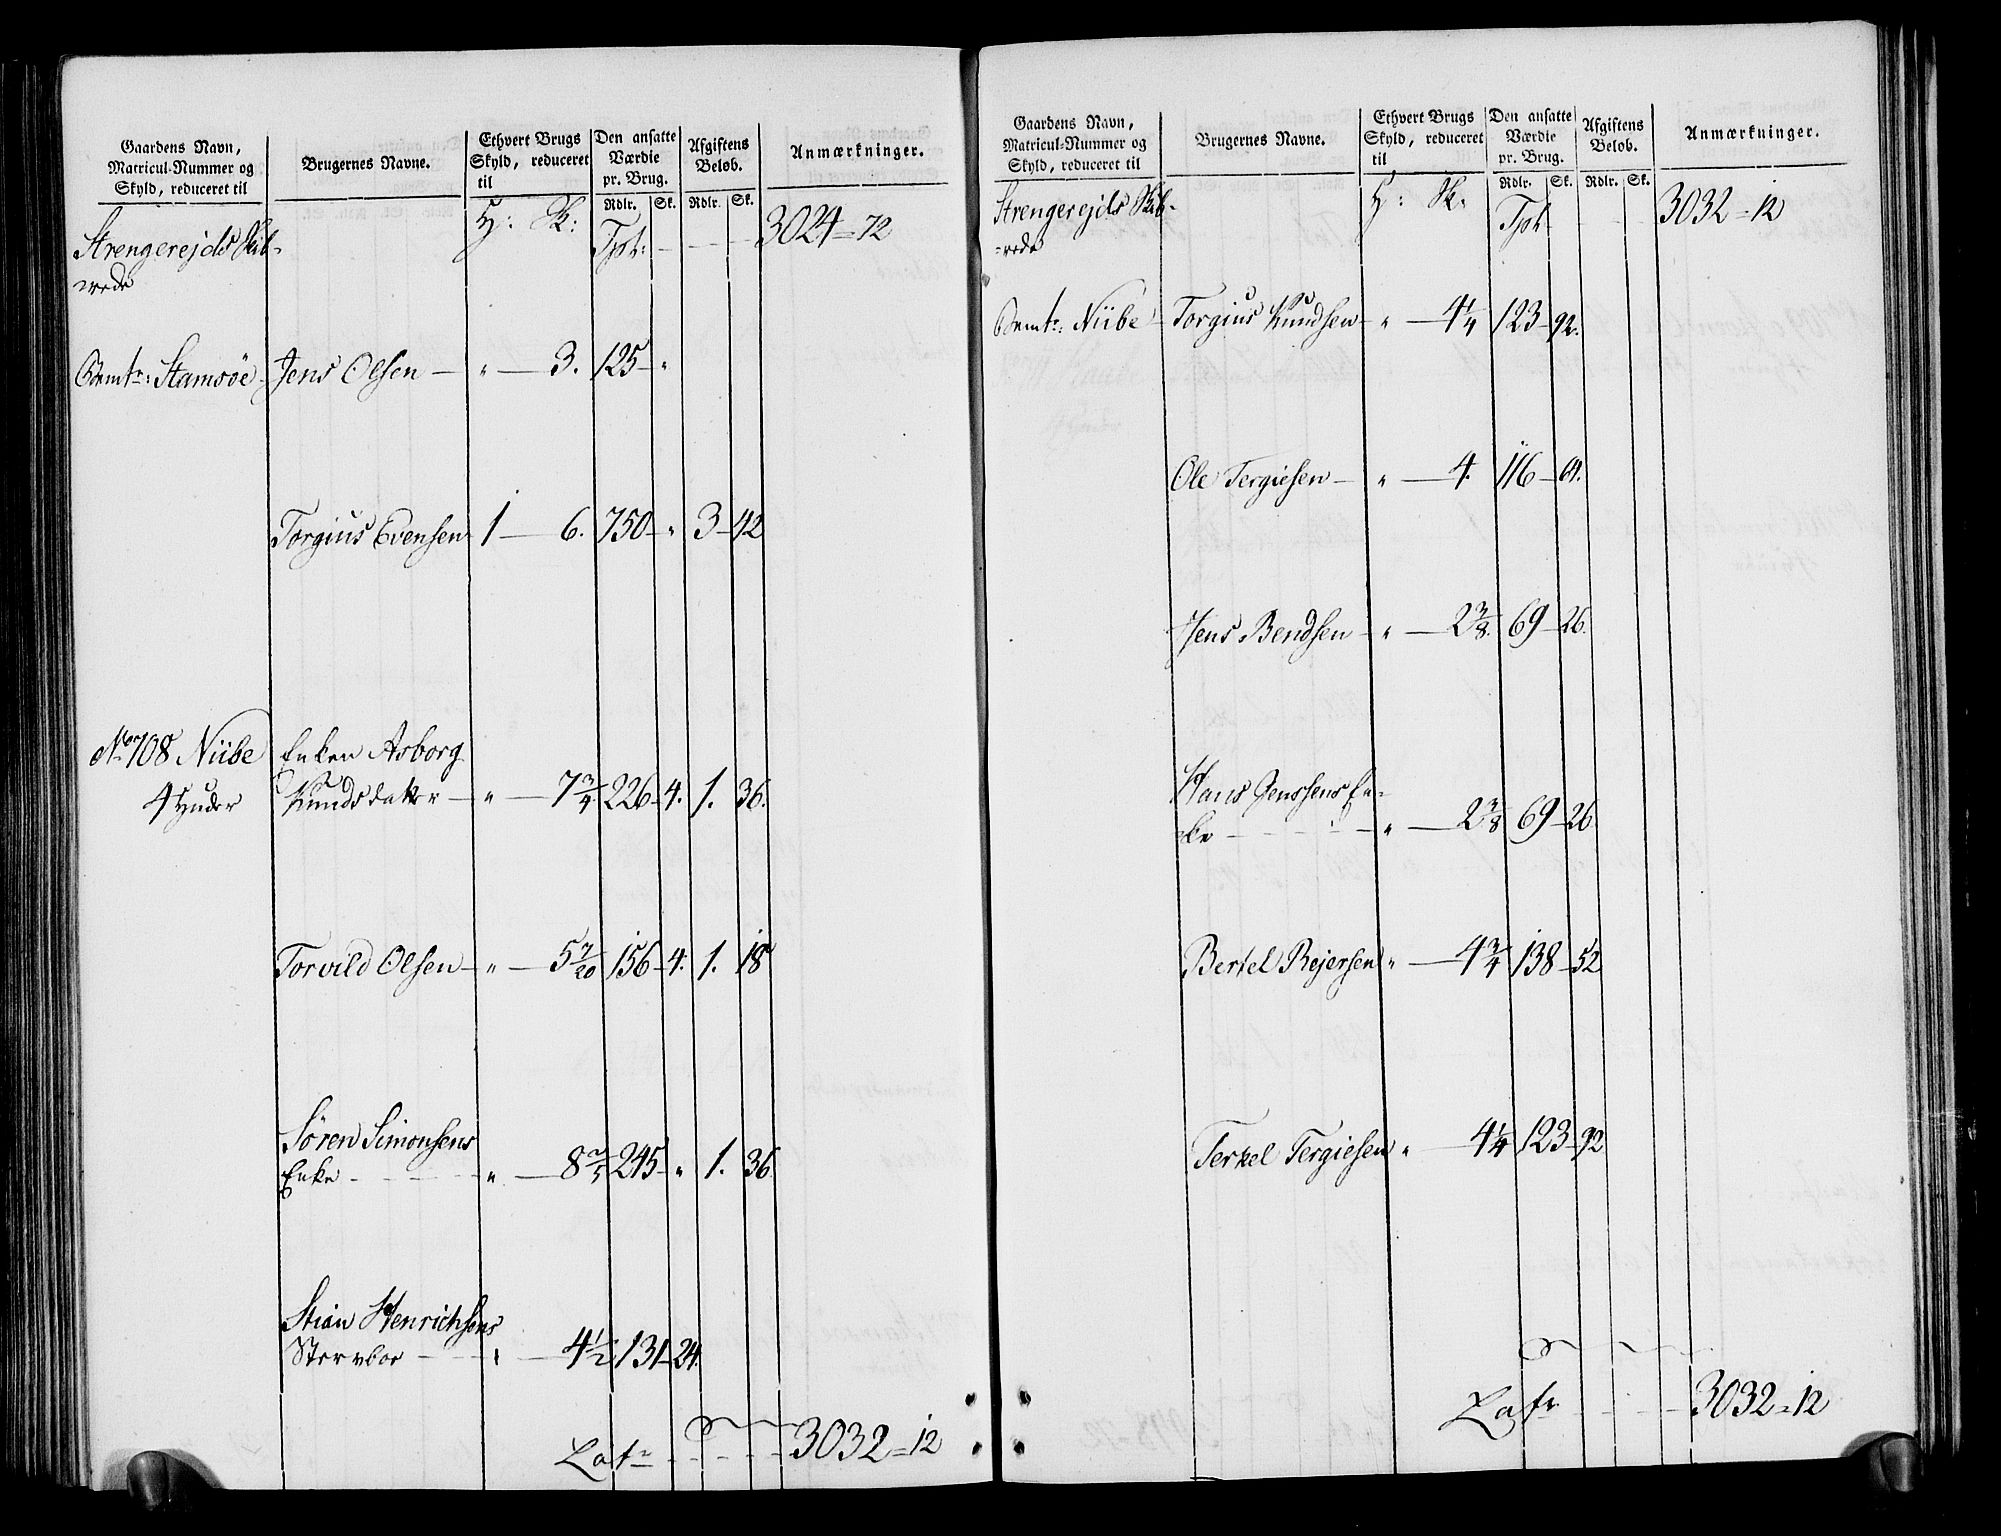 Gaardens Navn,
Matricul-Nummer og
Skyld, reduceret til
Brugernes Navne.
Ethvert Brugs
Skyld, reduceret
til
Den ansatte
Værdie
pr. Brug.
Afgiftens
Beløb.
Anmærkninger.
Rdlr. Sk. Rdlr. Sk.
Strengerejds Skib-
rede
H: Sk: Tpt: 3024=72
Bemte: Stamsöe Jens Olsen — " — 3. 125 — "
Torgius Evensen 1 — 6. 750 — " 3 — 42
No 108 Niibe Enken Asborg
4 Huder Knudsdatter — " — 7 3/4 226 — 4. 1. 36.
Torvild Olsen — " — 5 7/20 156 — 4. 1. 18
Sören Simonsens
Enke " — 8 2/5 245 — " 1. 36.
Stian Henrichsens
Stervboe " — 4 1/2 131 — 24.
Latr 3032=12
Gaardens Navn,
Matricul-Nummer og
Skyld, reduceret til
Brugernes Navne.
Ethvert Brugs
Skyld, reduceret
til
Den ansatte
Værdie
pr. Brug.
Afgiftens
Beløb.
Anmærkninger.
Rdlr. Sk. Rdlr. Sk.
Strengerejds Skib-
rede
H: Sk: Tpt 3032=12
Bemte: Niibe Torgius Knudsen — " — 4 1/4 123 — 92.
Ole Tergiesen — " — 4. 116 — 64.
Jens Bendsen — " — 2 3/8. 69 — 26.
Hans Jenssens En-
ke " — 2 3/8 69 — 26
Bertel Rejersen " — 4 3/4 138 — 52
Terkel Tergiesen " — 4 1/4 123 — 92
Latr 3032=12